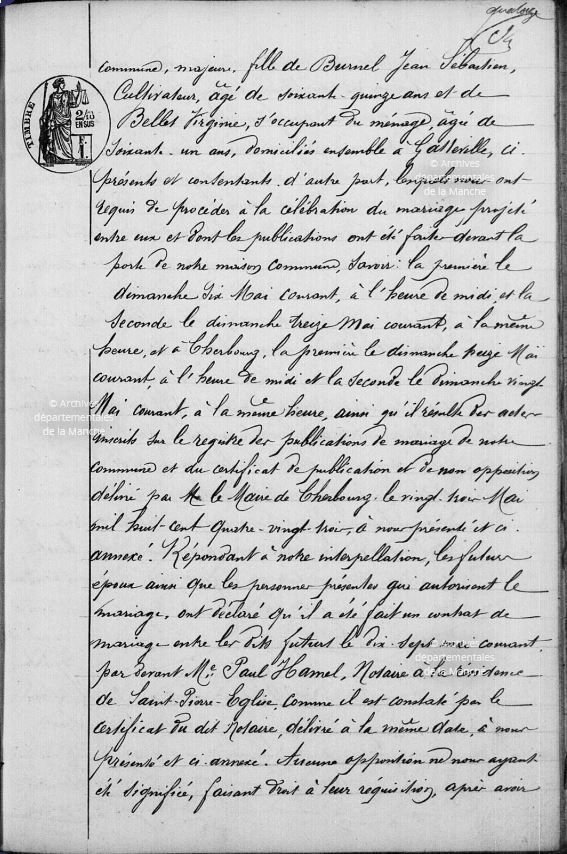 quatorze
14
commune, majeure, fille de Burnel Jean Sébastien,
Cultivateur, âgé de soixante-quinze ans et de
Belles Virginie, s'occupant du ménage, âgée de
soixante-un ans, domiciliés ensemble à Gatteville, ci
présents et consentants d'autre part, lesquels nous ont
requis de procéder à la célébration du mariage projeté
entre eux et dont les publications ont été faites devant la
porte de notre maison commune, savoir: la première le
dimanche six Mai courant, à l'heure de midi, et la
seconde le dimanche treize Mai courant, à la même
heure, et à Cherbourg, la première le dimanche treize Mai
courant, à l'heure de midi et la seconde le dimanche vingt
Mai courant, à la même heure, ainsi qu'il résulte des actes
inscrits sur le registre des publications de mariage de notre
commune et du certificat de publication et de non opposition
délivré par M. le Maire de Cherbourg, le vingt-trois Mai
mil huit-cent quatre-vingt-trois, à nous présenté et ci-
annexé. Répondant à notre interpellation, les futurs
époux ainsi que les personnes présentes qui autorisent le
mariage, ont déclaré qu'il a été fait un contrat de
mariage entre les dits futurs le dix-sept mai courant
par devant Me. Paul Hamel, Notaire à la résidence
de Saint-Pierre-Eglise, comme il est constaté par le
certificat du dit Notaire, délivré à la même date, à nous
présenté et ci-annexé. Aucune opposition ne nous ayant
été signifiée, faisant droit à leur réquisition, après avoir
TIMBRE
2/10
EN SUS
© Archives
départementales
de la Manche
© Archives
départementales
de la Manche
départementales